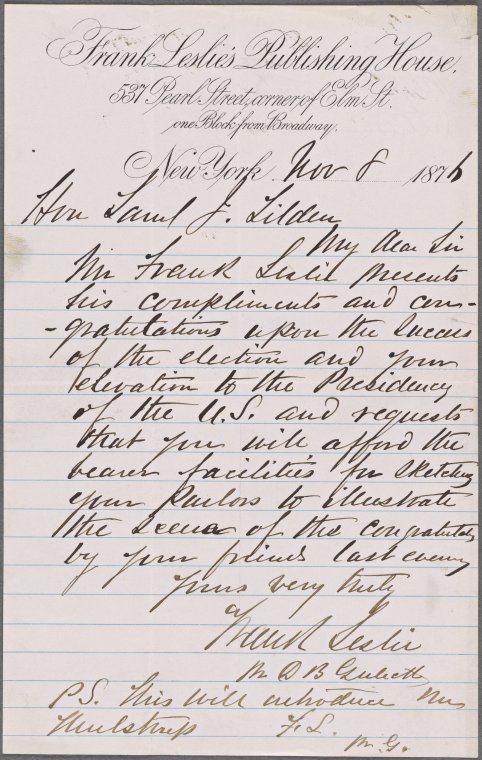 Frank Leslie's Publishing House.
537 Pearl Street, corner of Elm St.
one Block from Broadway.
New York Nov 8 1876
Hon Saml J. Tilden
My Dear Sir
Mr Frank Leslie presents
his compliments and con-
-gratulations upon the success
of the election and your
elevation to the Presidency
of the U.S. and requests
that you will afford the
bearer facilities for sketching
your Parlors to illustrate
the scene of the congratulations
by your friends last evening
Yours very truly
Frank Leslie
pr D B
P.S. This will introduce Mr
F. L.
pr G.